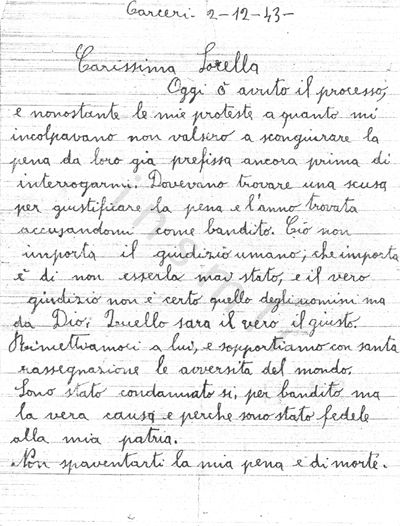 Carceri - 2-12-43-
Carissima Sorella
Oggi ò avuto il processo,
e nonostante le mie proteste a quanto mi
incolpavano non valsero a scongiurare la
pena da loro già prefissa ancora prima di
interrogarmi. Dovevano trovare una scusa
per giustificare la pena e l'anno trovata
accusandomi come bandito. Ciò non
importa il giudizio umano; che importa
è di non esserla mai stato, e il vero
giudizio non è certo quello degli uomini ma
da Dio; Quello sara il vero il giusto.
Rimettiamoci a lui, e sopportiamo con santa
rassegnazione le avversità del mondo.
Sono stato condannato si, per bandito ma
la vera causa e perche sono stato fedele
alla mia patria.
Non spaventarti la mia pena e di morte.